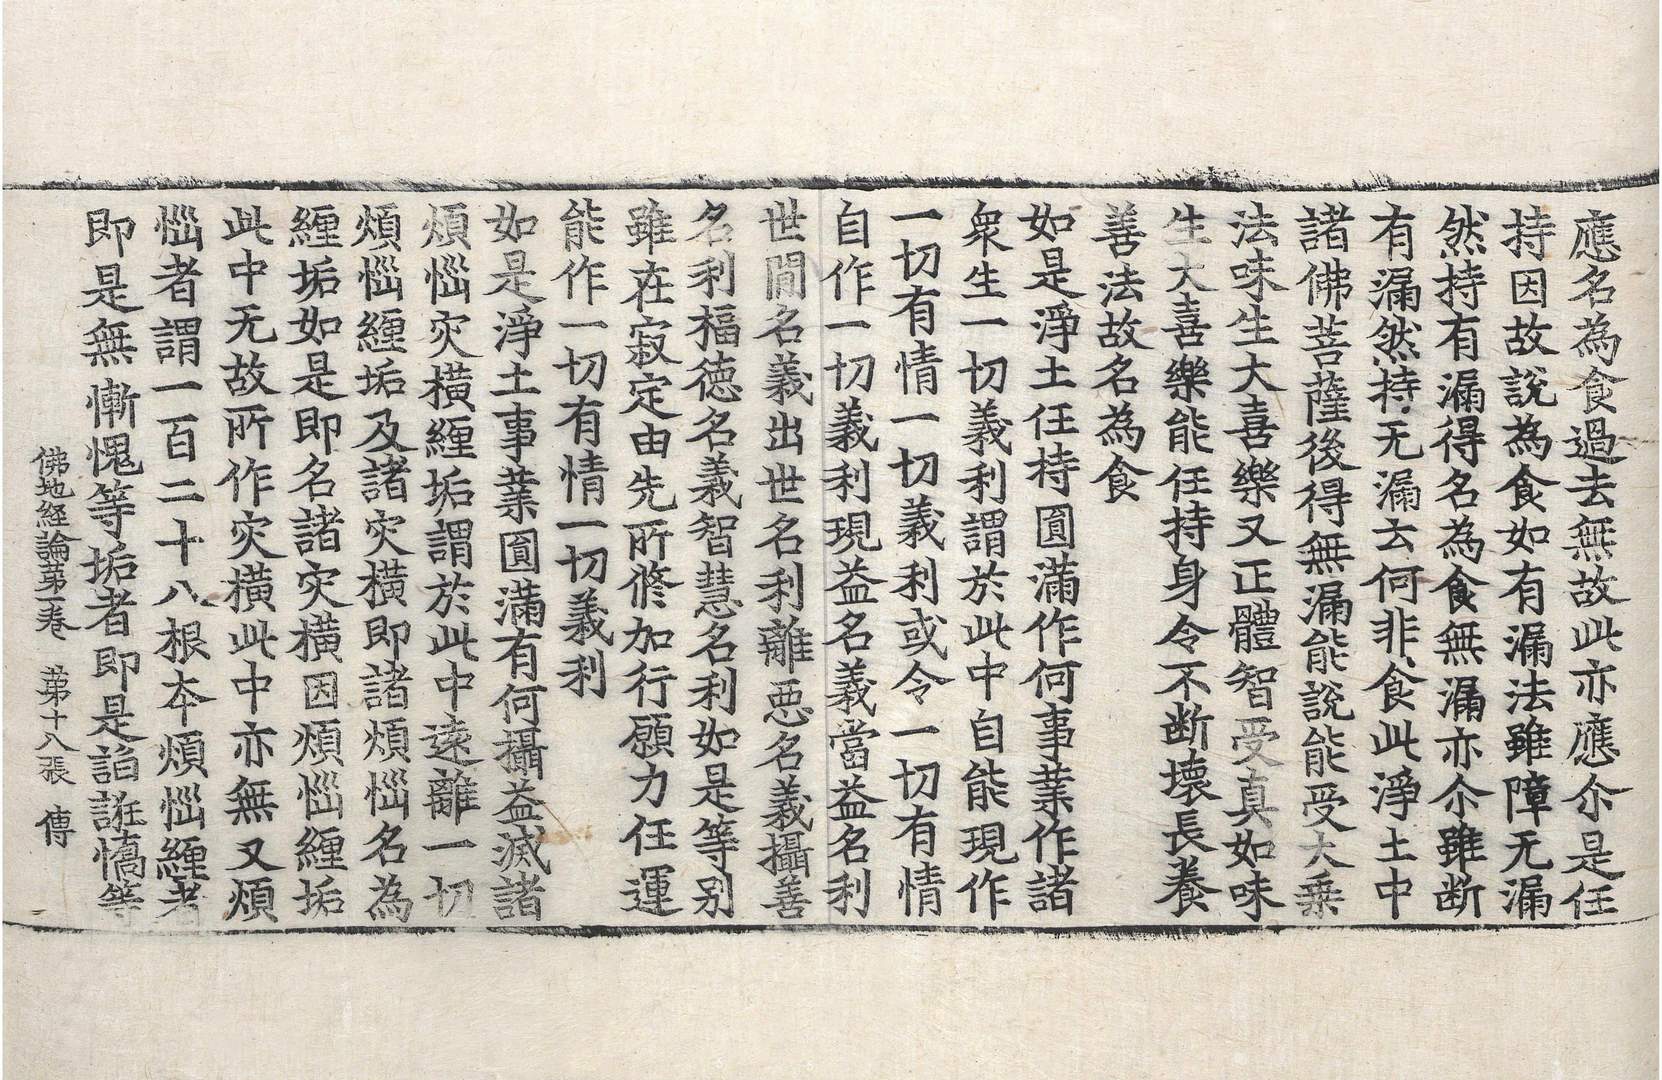 應名為食過去無故此亦應尒是任
持因故說為食如有漏法雖障无漏
然持有漏得名為食無漏亦尒雖断
有漏然持无漏去何非食此淨土中
諸佛菩薩後得無漏能說能受大乗
法味生大喜樂又正體智受真如味
生大喜樂能任持身令不断壞長養
善法故名為食
如是淨土任持圎滿作何事業作諸
衆生一切義利謂於此中自能現作
一切有情一切義利或令一切有情
自作一切義利現益名義當益名利
世間名義出世名利離惡名義攝善
名利福德名義智慧名利如是等别
雖在寂定由先所修加行願力任運
能作一切有情一切義利
如是淨土事業圎滿有何攝益滅諸
煩惱灾橫纏垢謂於此中遠離一切
煩惱纏垢及諸灾橫即諸煩惱名為
纏垢如是即名諸灾橫因煩惱纏垢
此中无故所作灾橫此中亦無又煩
惱者謂一百二十八根本煩惱纏者
即是無慚愧等垢者即是諂誑憍等
佛地経論苐一卷 苐十八張 傳